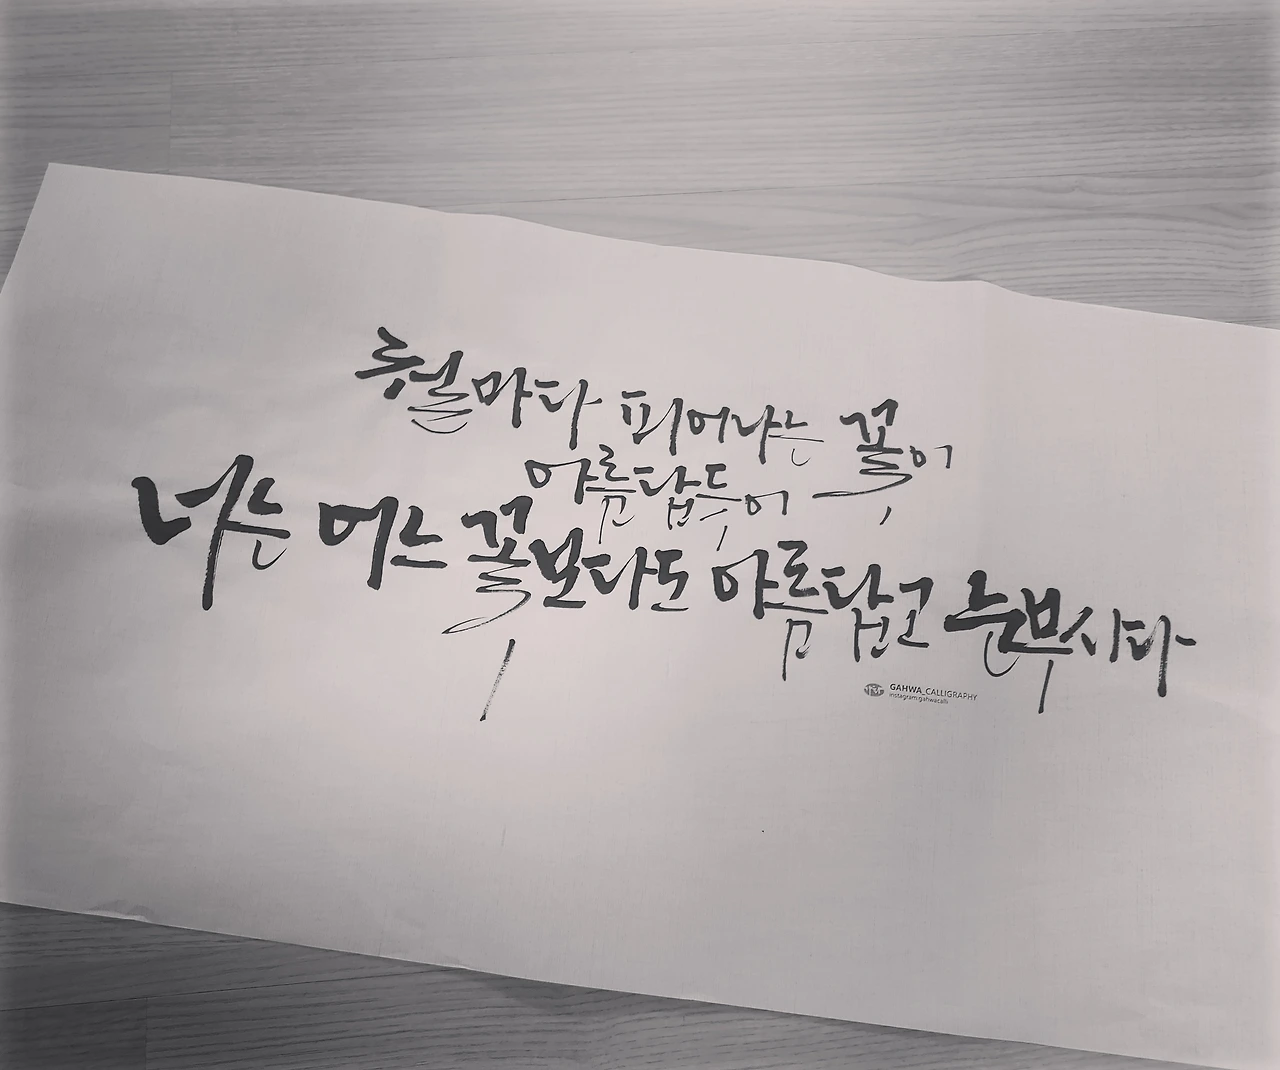 철마다 피어나는 꽃이
아름답듯이
너는 어느 꽃보다도 아름답고 눈부시다
GAHWA_CALLIGRAPHY
instagram:gahwacalli